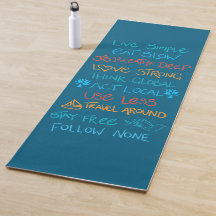 Live Simple
EAT SLOW
BREATHE DEEP
LOVE STRONG
THINK GLOBAL
ACT LOCAL
USE LESS
TRAVEL AROUND
STAY FREE
FOLLOW NONE